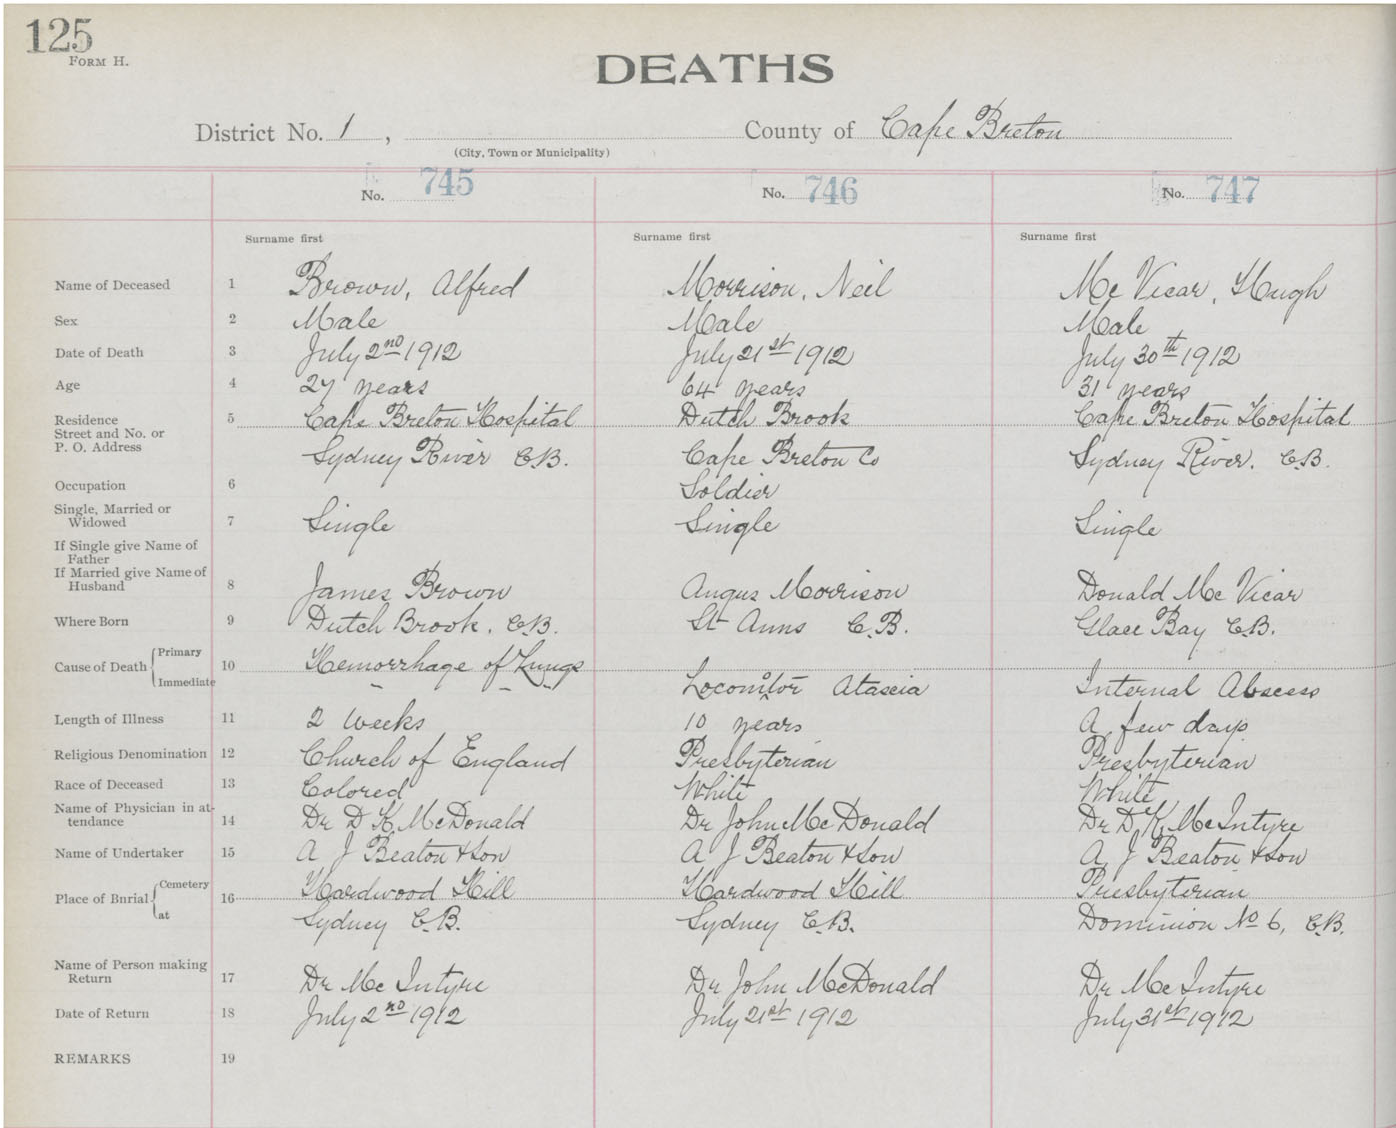 125
FORM H.
DEATHS
District No. 1 , County of Cape Breton
(City, Town or Municipality)
No. 745 No. 746 No. 747
Surname first Surname first Surname first
Name of Deceased 1 Brown, Alfred Morrison, Neil Mc Vicar, Hugh
Sex 2 Male Male Male
Date of Death 3 July 2nd 1912 July 21st 1912 July 30th 1912
Age 4 27 years 64 years 31 years
Residence 5 Cape Breton Hospital Dutch Brook Cape Breton Hospital
Street and No. or
P. O. Address Sydney River C.B. Cape Breton Co Sydney River. C.B.
Occupation 6 Soldier
Single, Married or
Widowed 7 Single Single Single
If Single give Name of
Father
If Married give Name of
Husband 8 James Brown Angus Morrison Donald Mc Vicar
Where Born 9 Dutch Brook, C.B. St Anns C.B. Glace Bay C.B.
Cause of Death Primary 10 Hemorrhage of Lungs
Immediate Locomitor Atascia Internal Abscess
Length of Illness 11 2 weeks 10 years A few days
Religious Denomination 12 Church of England Presbyterian Presbyterian
Race of Deceased 13 Colored White White
Name of Physician in at-
tendance 14 Dr D K McDonald Dr John McDonald Dr D K McIntyre
Name of Undertaker 15 A J Beaton & Son A J Beaton & Son A J Beaton & Son
Place of Bnrial Cemetery 16 Hardwood Hill Hardwood Hill Presbyterian
at Sydney C.B. Sydney C.B. Dominion No 6, C.B.
Name of Person making
Return 17 Dr Mc Intyre Dr John McDonald Dr McIntyre
Date of Return 18 July 2nd 1912 July 21st 1912 July 31st 1912
REMARKS 19